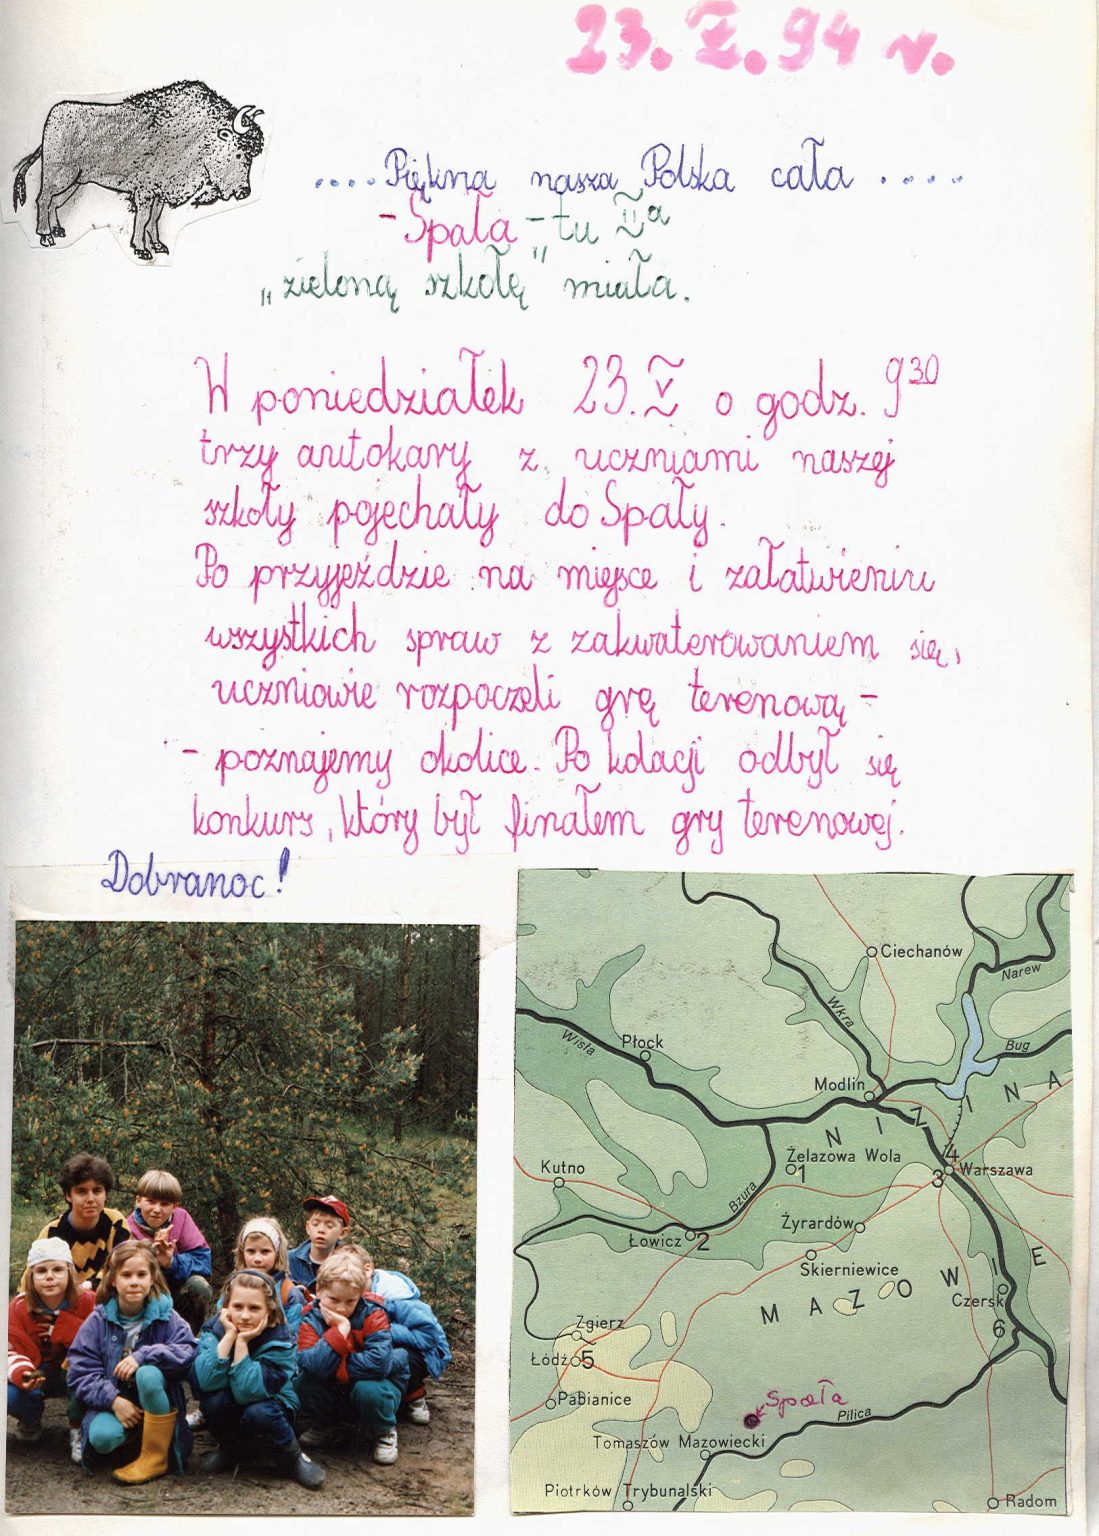 23.V.94 r.
....Piękna nasza Polska cała....
-Spała-tu IIa
„zieloną szkołę" miała.
W poniedziałek 23.V o godz. 9³⁰
trzy autokary z uczniami naszej
szkoły pojechały do Spały.
Po przyjeździe na miejsce i załatwieniu
wszystkich spraw z zakwaterowaniem się,
uczniowie rozpoczeli grę terenową -
- poznajemy okolice. Po kolacji odbył się
konkurs, który był finałem gry terenowej.
Dobranoc!
Ciechanów
Narew
Wkra
Wisła
Płock
Bug
Modlin
NIZINA
Żelazowa Wola
1
4
3 Warszawa
Kutno
Bzura
Żyrardów
Łowicz 2
Skierniewice
MAZOWIE
Czersk
6
Zgierz
Łódź 5
Pabianice
Spała
Pilica
Tomaszów Mazowiecki
Piotrków Trybunalski
Radom